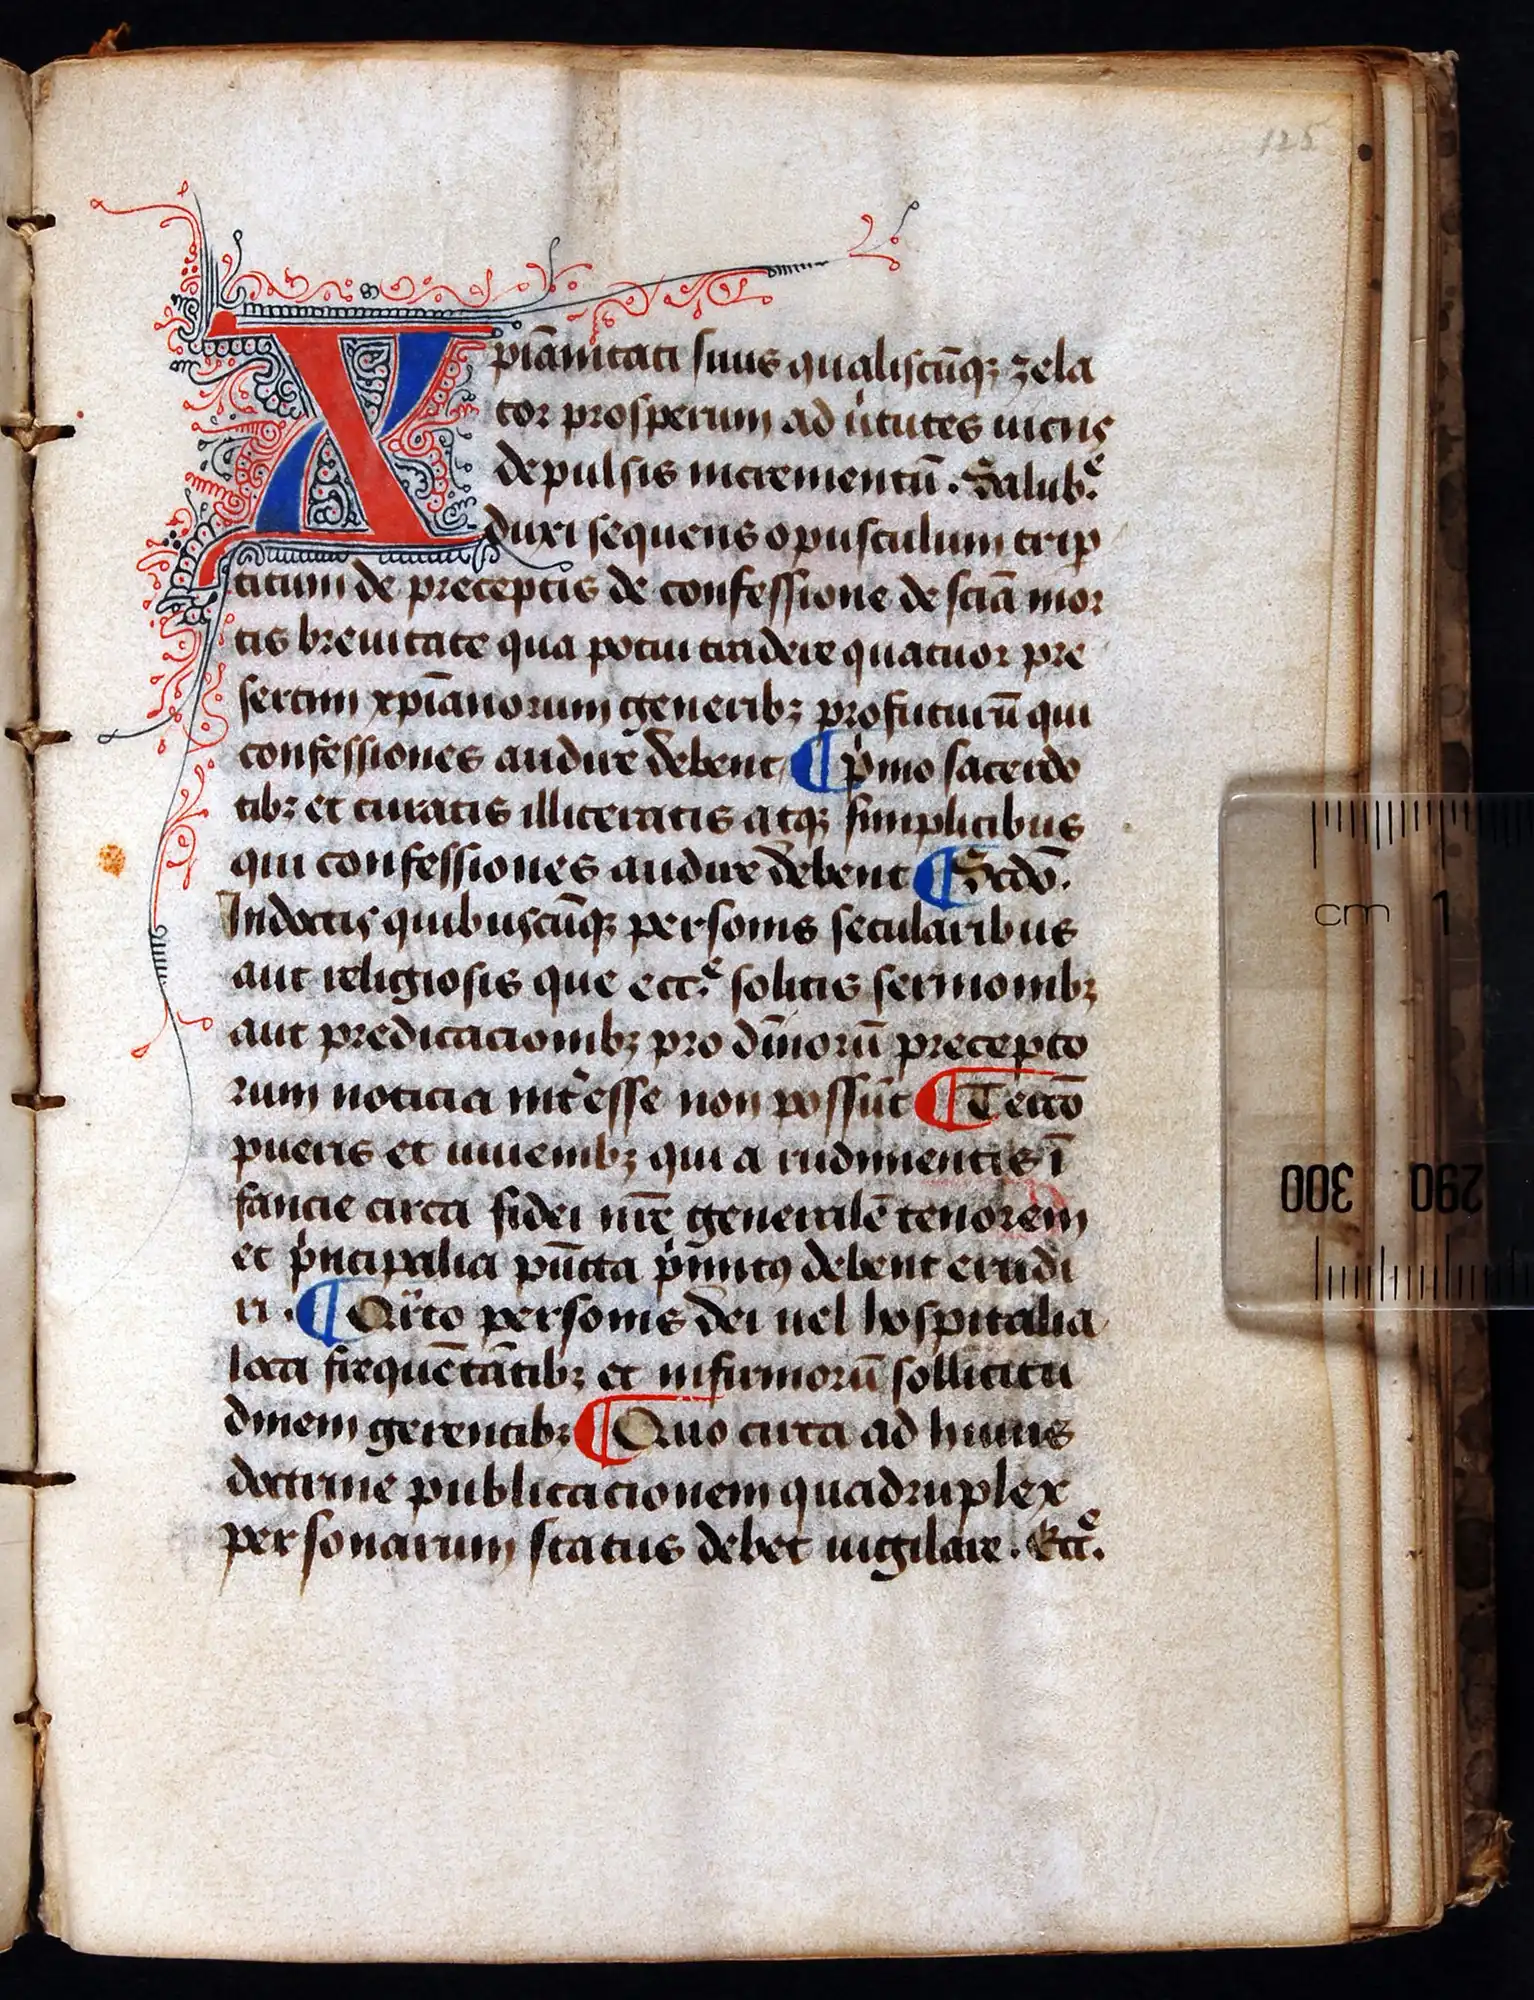 125
Xp̄ianitati suus qualiscūqꝫ zela
tor prosperum ad v̓tutes uicijs
depulsis incrementū. Salubͤ.
duxi sequens opusculum trip
titum de preceptis de confessione de sciā mor
tis breuitate qua potui tradere quatuor pre
sertim xp̄ianorum generibꝫ profuturū qui
confessiones audire debent ¶ p̓mo sacerdo
tibꝫ et curatis illiteratis atqꝫ simplicibus
qui confessiones audire debent ¶ Scdō.
Indoctis quibuscūqꝫ personis secularibus
aut religiosis que eccͤ. solitis sermonibꝫ
aut predicacionibꝫ pro diuiorū precepto
rum noticia int̓esse non possūt ¶ Tercō
pueris et iuuenibꝫ qui a rudimentis ī
fancie circa fidei nr̄e generalē tenorem
et p̓ncipalia pūcta p̓mitꝰ debent erudi
ri. ¶ Qr̄to personis dei uel hospitalia
loca frequētātibꝫ et infirmorū sollicitu
dinem gerentibꝫ ¶ Quo circa ad huius
doctrine publicacionem quadruplex
personarum status debet uigilare. Eccͤ.
cm 1
300 290